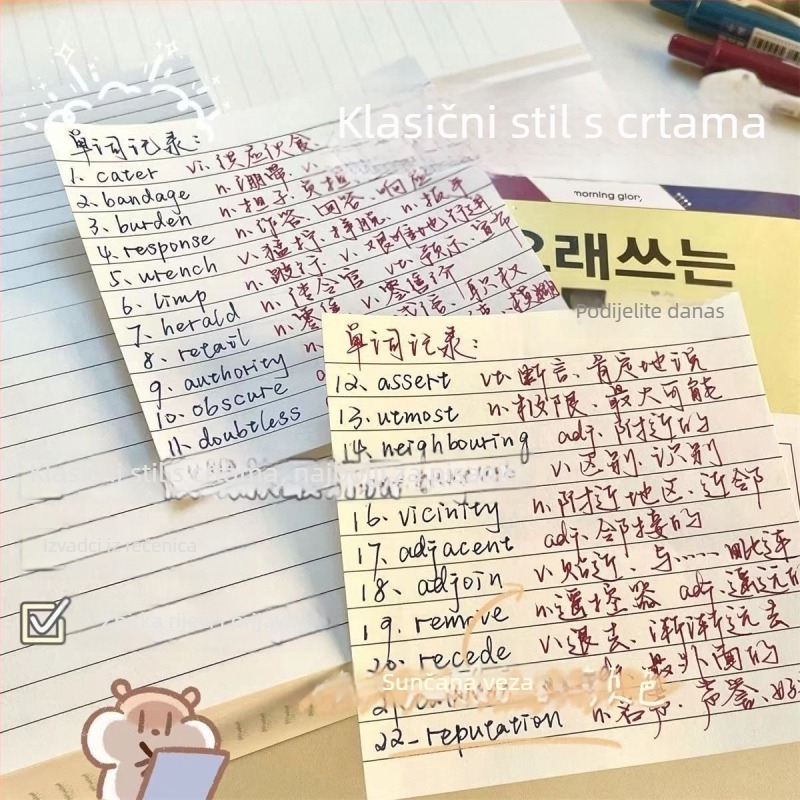 Klasični stil s crtama
单词记录:
1. cater vi. 供应伙食
2. bandage n. 绷带. v.
3. burden n. 担子. 负担
4. response n. 作答. 回答. 响应
5. wrench v. 猛拧. 挣脱. n. 扳手
6. limp n. 跛行. v. 艰难地行进
7. herald n. 传令官 vt. 预示. 宣布
8. retail n. 零售 v. 零售
9. authority n. 职权
10. obscure
11. doubtless
morning glory
오래쓰는
Podijelite danas
单词记录:
12、assert vt. 断言、肯定地说
13、utmost n. 极限、最大可能
14、neighbouring adj. 附近的
v. 区别. 识别
16、vicinity n. 附近地区、近邻
17、adjacent adj. 邻接的
18、adjoin v. 贴近、与……毗连
19. remove n. 遥控器 adj. 遥远的
20. recede v. 退去、渐渐远去
最外面的
22- reputation n. 名声、声誉、好
Klasični stil s crtama,
izvadci iz rečenica
Sunčana veza
颜色